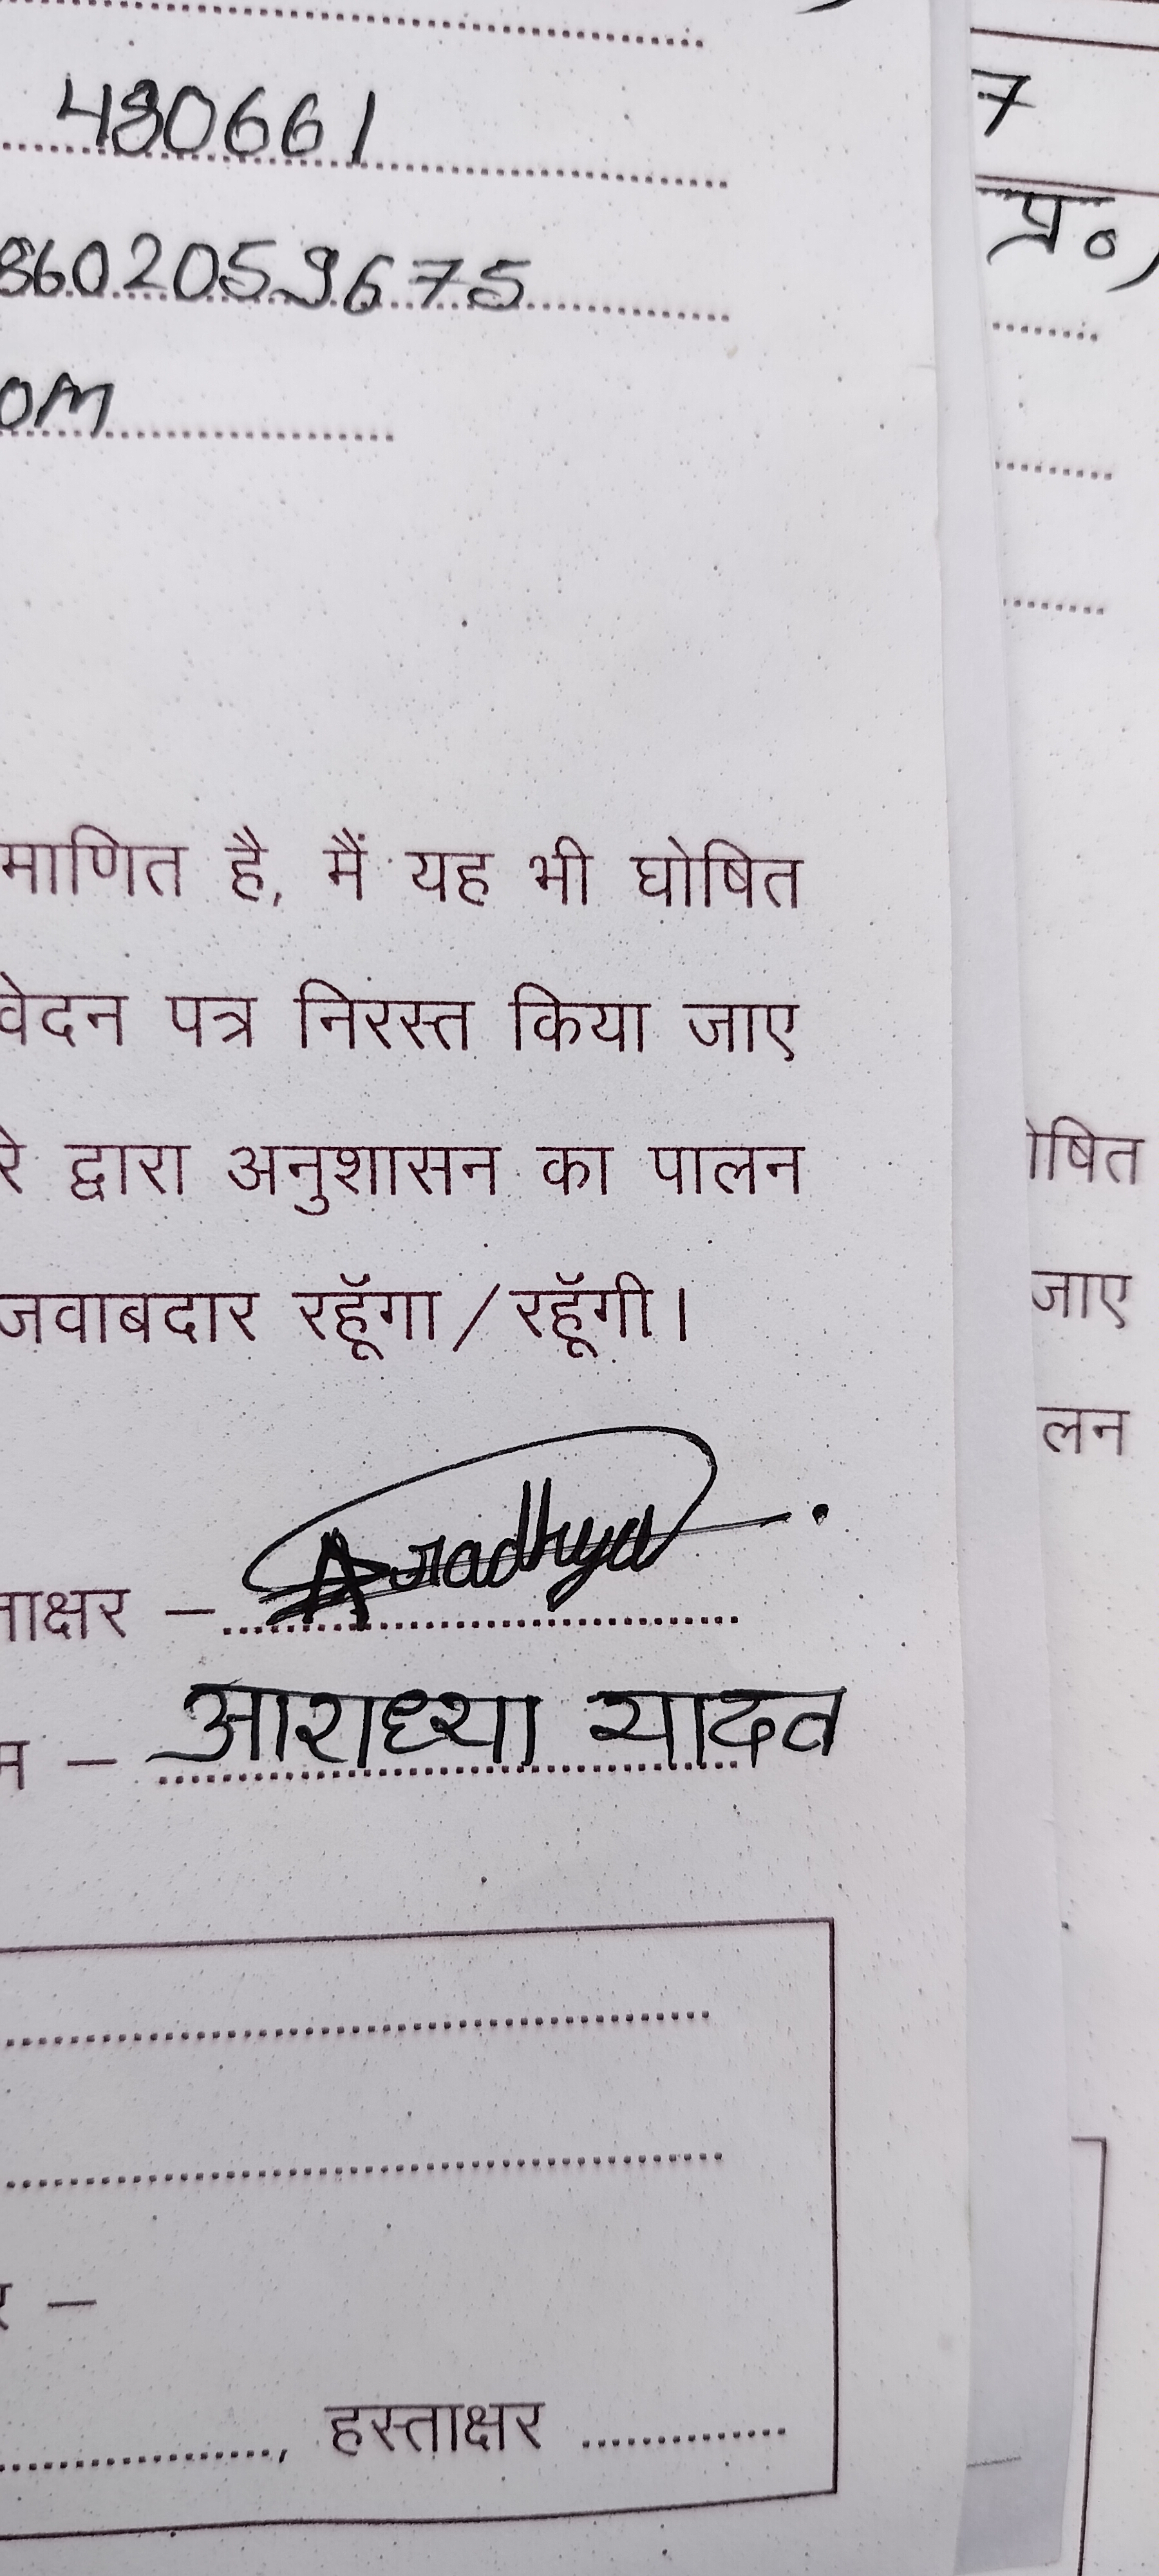 480661
8602059675
OM
माणित है, मैं यह भी घोषित
वेदन पत्र निरस्त किया जाए
रे द्वारा अनुशासन का पालन
जवाबदार रहूँगा / रहूँगी।
ताक्षर – Aradhya
म – आराध्या यादव
र –
, हस्ताक्षर
7
प्र०)
ोषित
जाए
लन